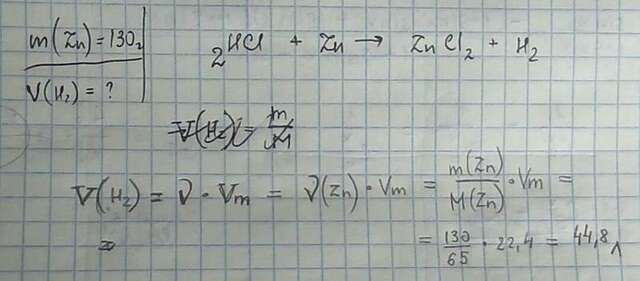 m(Zn)=130г
V(H₂) = ?
2HCl + Zn → ZnCl₂ + H₂
V(H₂) = m/M
V(H₂) = ν · Vm = ν(Zn) · Vm = m(Zn)/M(Zn) · Vm =
= = 130/65 · 22,4 = 44,8 л